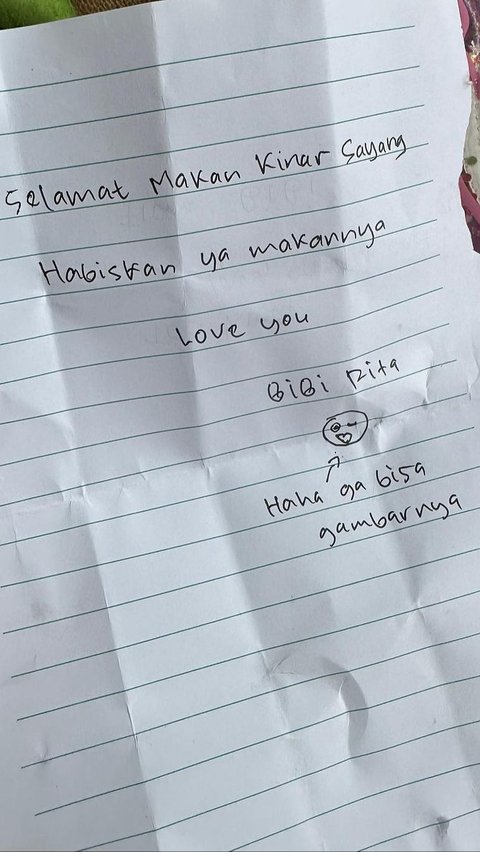 Selamat Makan Kinar Sayang
Habiskan ya makannya
Love you
BiBi Rita
Haha ga bisa
gambarnya